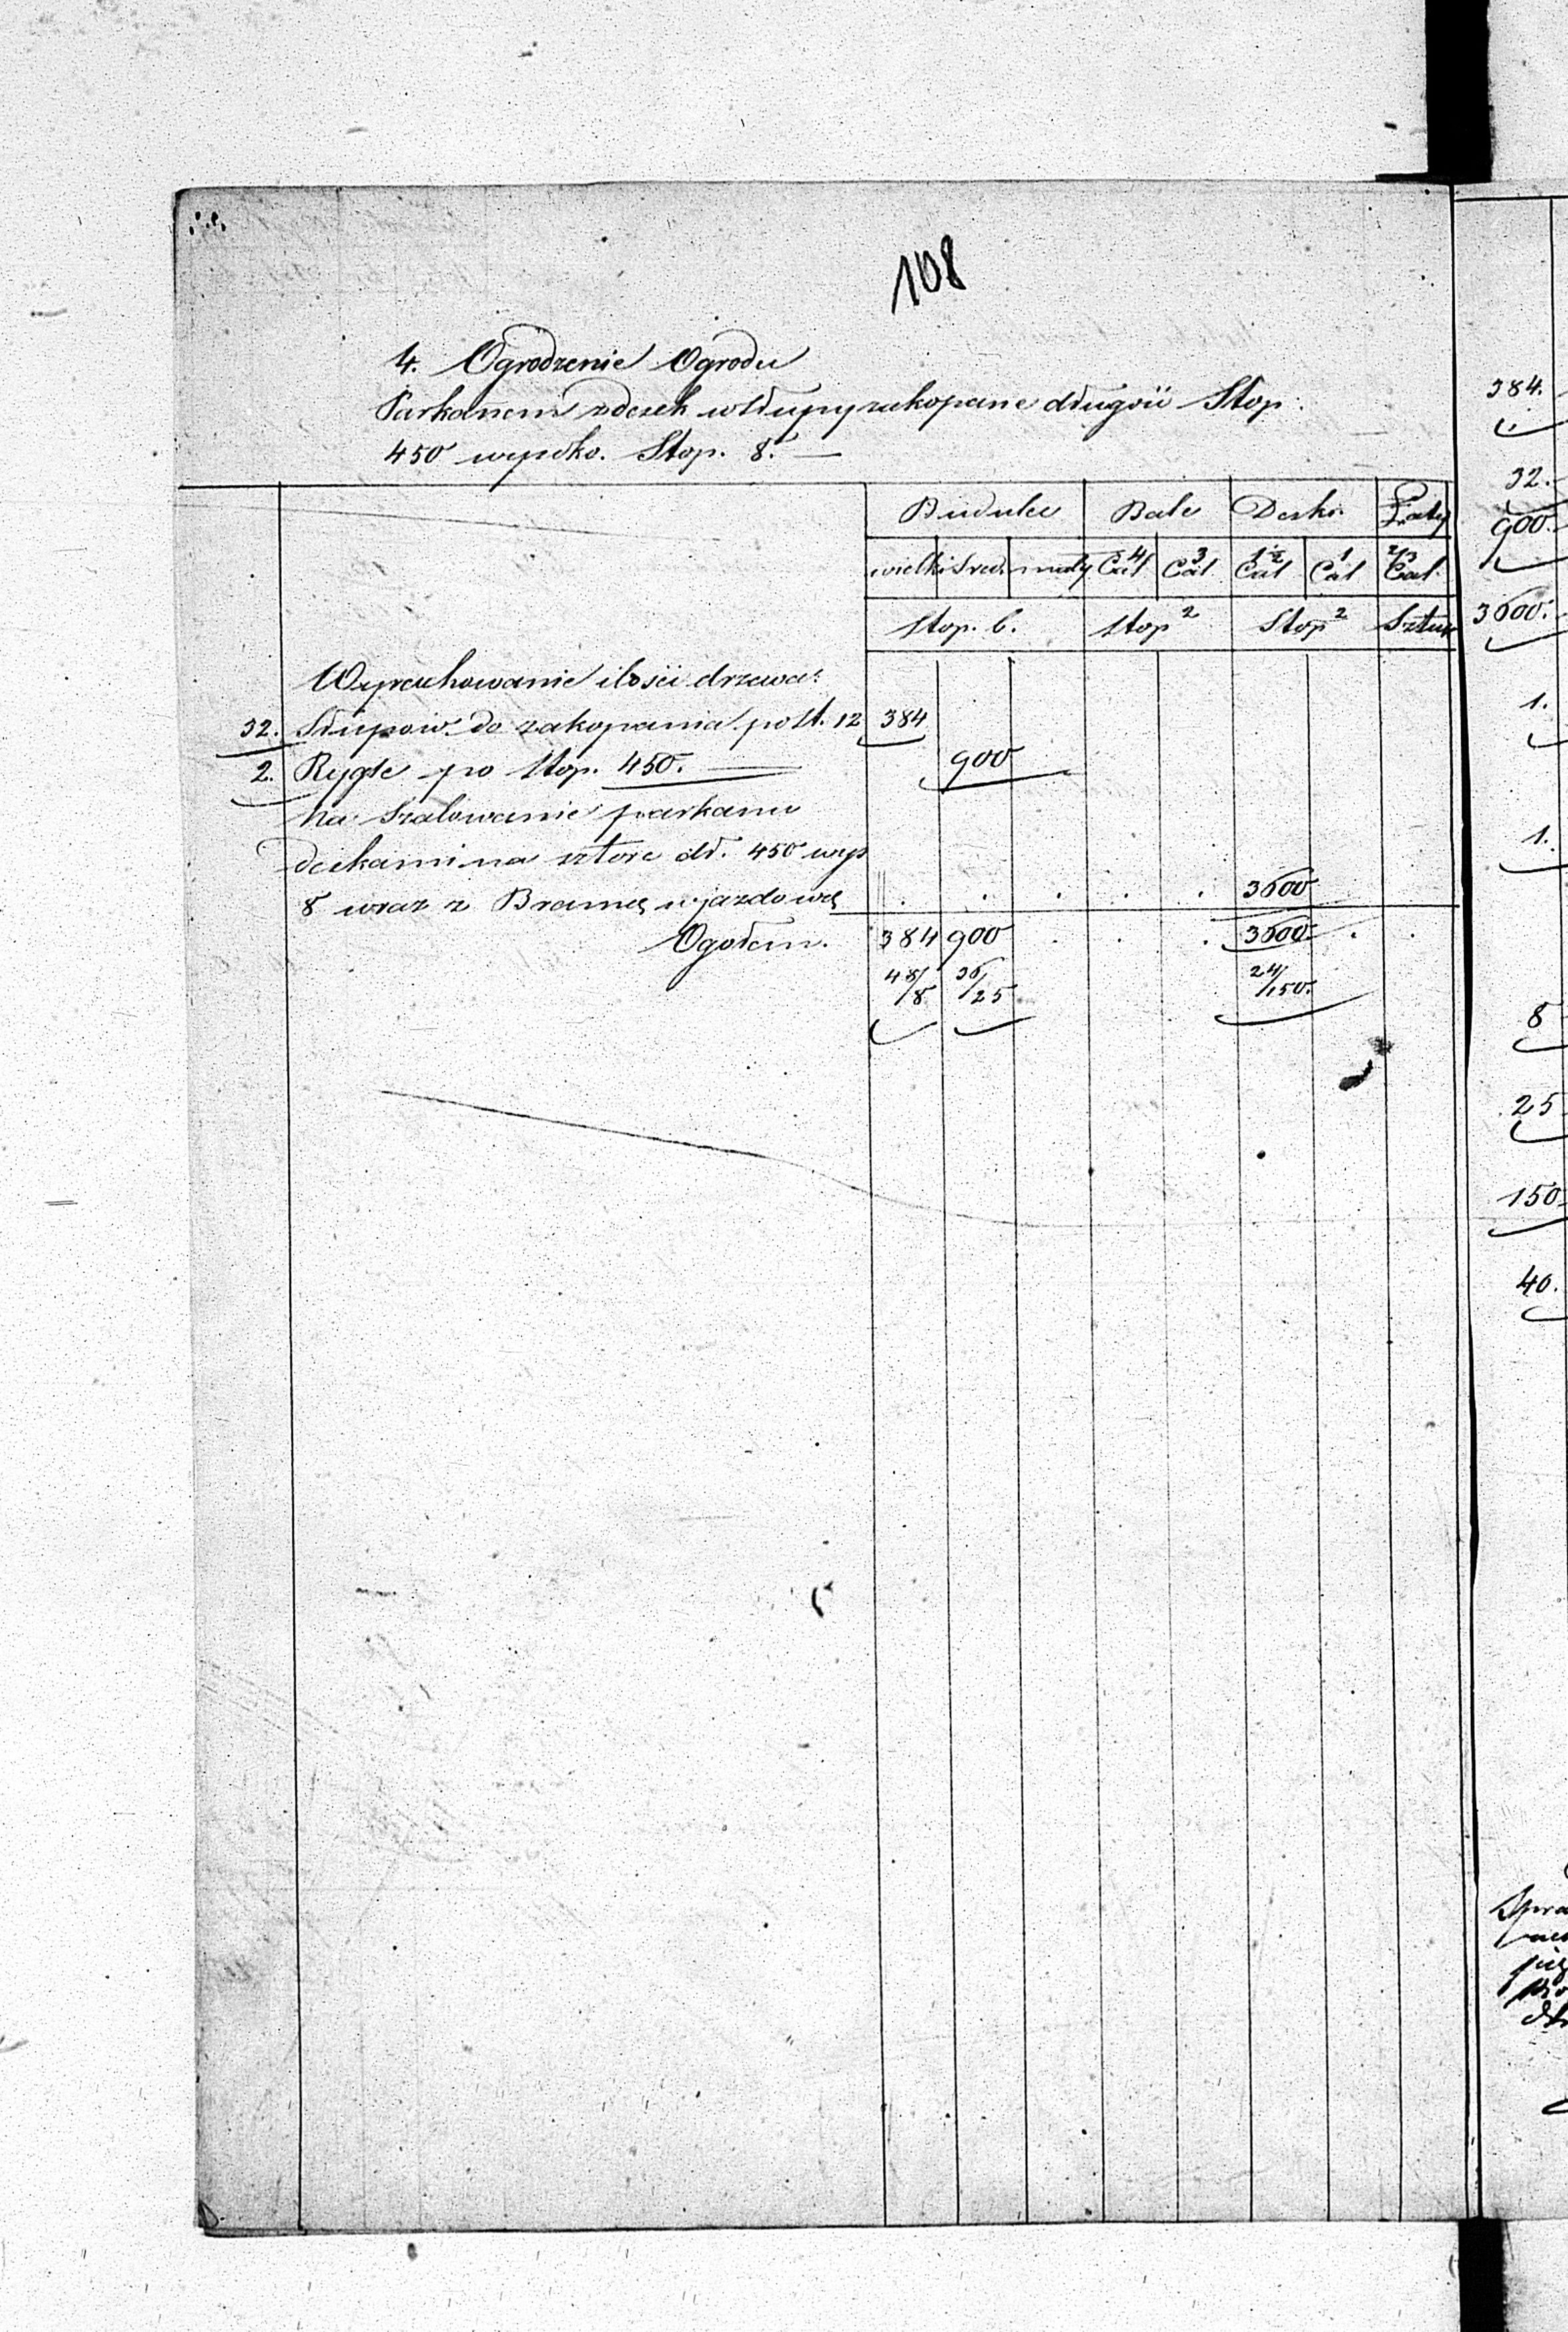 108
4. Ogrodzenie Ogrodu
Parkanem z desek w słupy zakopane długości Stop.
450 wysoko. Stop. 8. —
Budulec Bale Deski. Łaty
wielki Sred. mały 4 Cal 3 Cal 1½ Cal 1 Cal 2/3 Cal.
Stop. b. Stop² Stop² Sztuk
Wyrachowanie ilości drzewa:
32. Słupow do zakopania po St. 12 384
2. Rygle po Stop. 450. 900
Na Szalowanie parkanu
deskami na sztorc dł. 450 wys
8 wraz z Bramą wjazdową . . . . . 3600
Ogołem. 384 900 . . . 3600 . .
48/8 36/25 24/150.
384.
32.
900.
3600.
1.
1.
8
25
150
40.